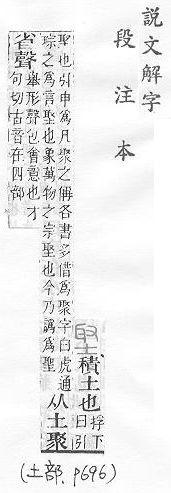 說文解字
段注本
埾積土也捊下
曰引
埾也引申為凡聚之偁各書多借為聚字白虎通
琮之為言埾也象萬物之宗埾也今乃譌為聖
从土聚
省聲
舉形聲包會意也才
句切古音在四部
(土部, p696)